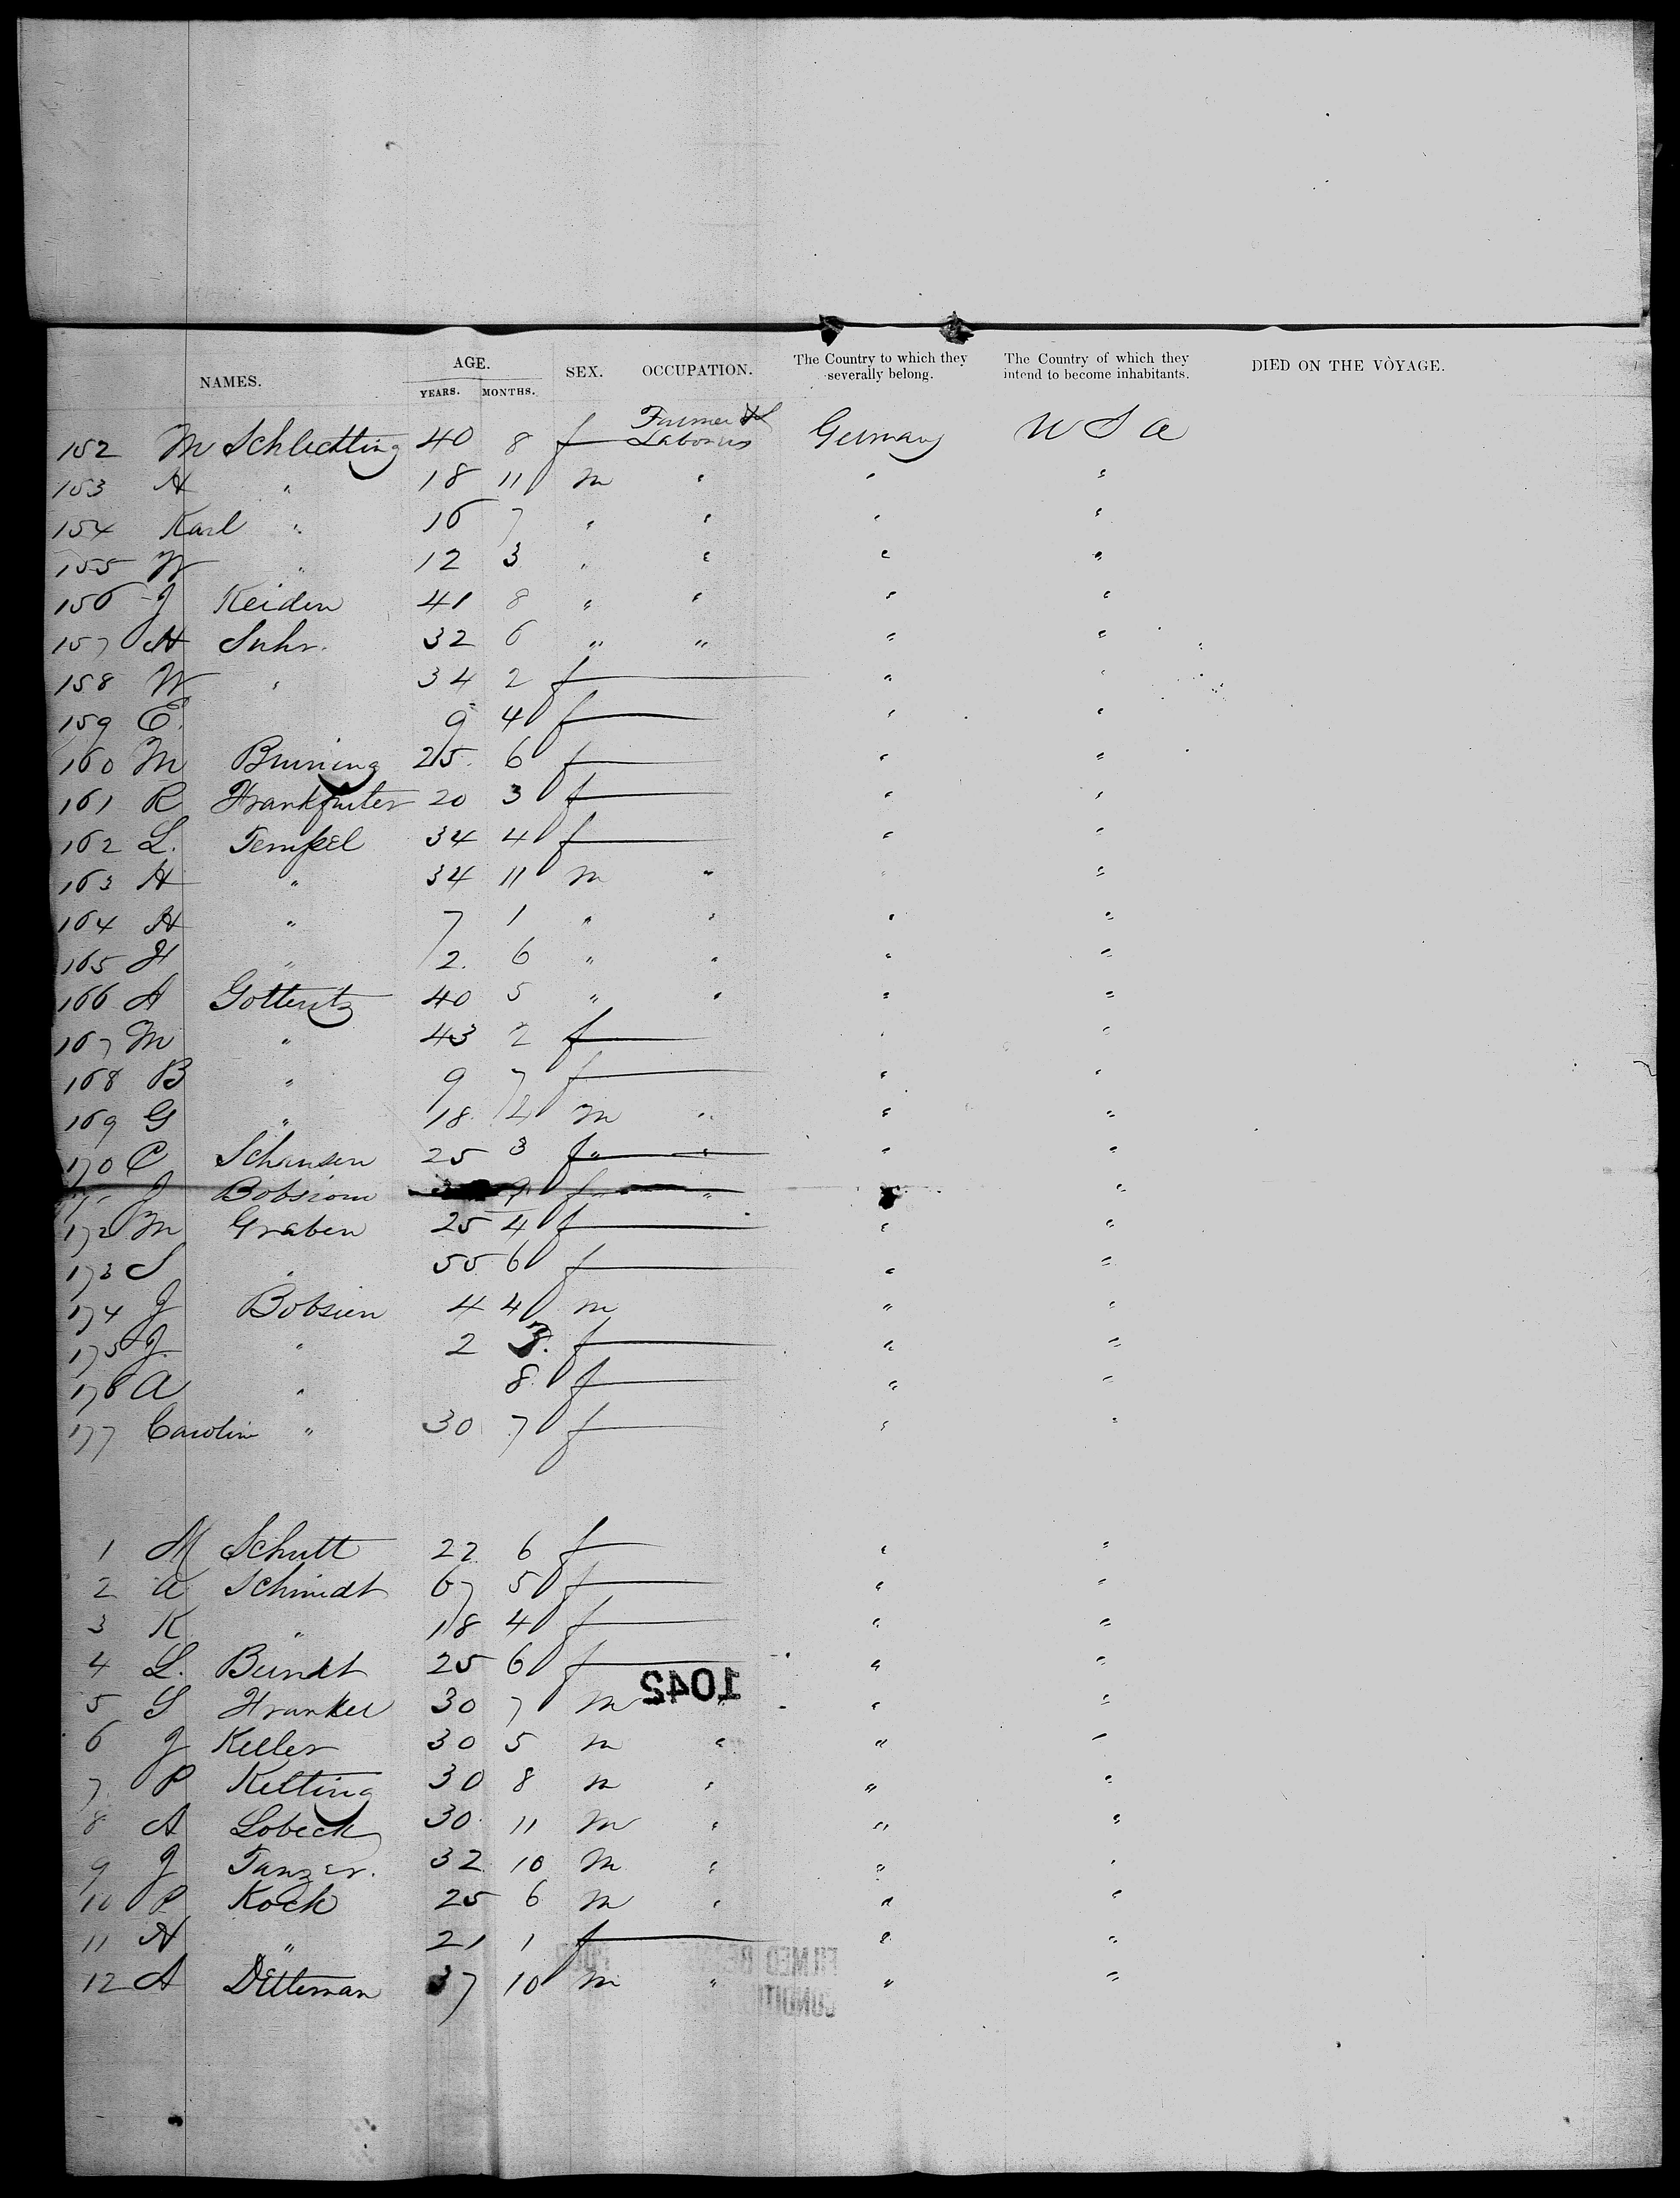 NAMES. AGE. YEARS. MONTHS. SEX. OCCUPATION. The Country to which they severally belong. The Country of which they intend to become inhabitants. DIED ON THE VOYAGE.
152 M Schlichting 40 8 f Farmer & Laborers Germany U S A
153 H " 18 11 m " " "
154 Karl " 16 7 " " " "
155 W " 12 3 " " " "
156 J Keiden 41 8 " " " "
157 H Suhr. 32 6 " " " "
158 W " 34 2 f " "
159 E. 9 4 f " "
160 M Bruning 25. 6 f " "
161 R Frankfurter 20 3 f " "
162 L. Tempel 34 4 f " "
163 H " 34 11 m " " "
164 H " 7 1 " " " "
165 F " 2. 6 " " " "
166 A Gotteritz 40 5 " " " "
167 M " 43 2 f " "
168 B " 9 7 f " "
169 G " 18. m " " "
170 C Schansen 25 3 f " " "
J Bobsiom f " " "
172 M Graben 25 4 f " "
173 S " 55 6 f " "
174 J Bobsien 4 4 m " "
175 J. " 2 3. f " "
176 A " 8. f " "
177 Carolin " 30 7 f " "
1 M Schutt 22 6 f " "
2 A Schmidt 67 5 f " "
3 K " 18 4 f " "
4 L. Berndt 25 6 f " "
1042
5 S Franker 30 7 m " "
6 J Keller 30 5 m " " "
7 P Kelting 30 8 m " " "
8 A Lobeck 30 11 m " " "
9 J Tanzer. 32 10 m " " "
10 P Kock 25 6 m " " "
11 H " 21 1 f " "
12 A Ditteman 37 10 m " " "
FILMED
CONDITION